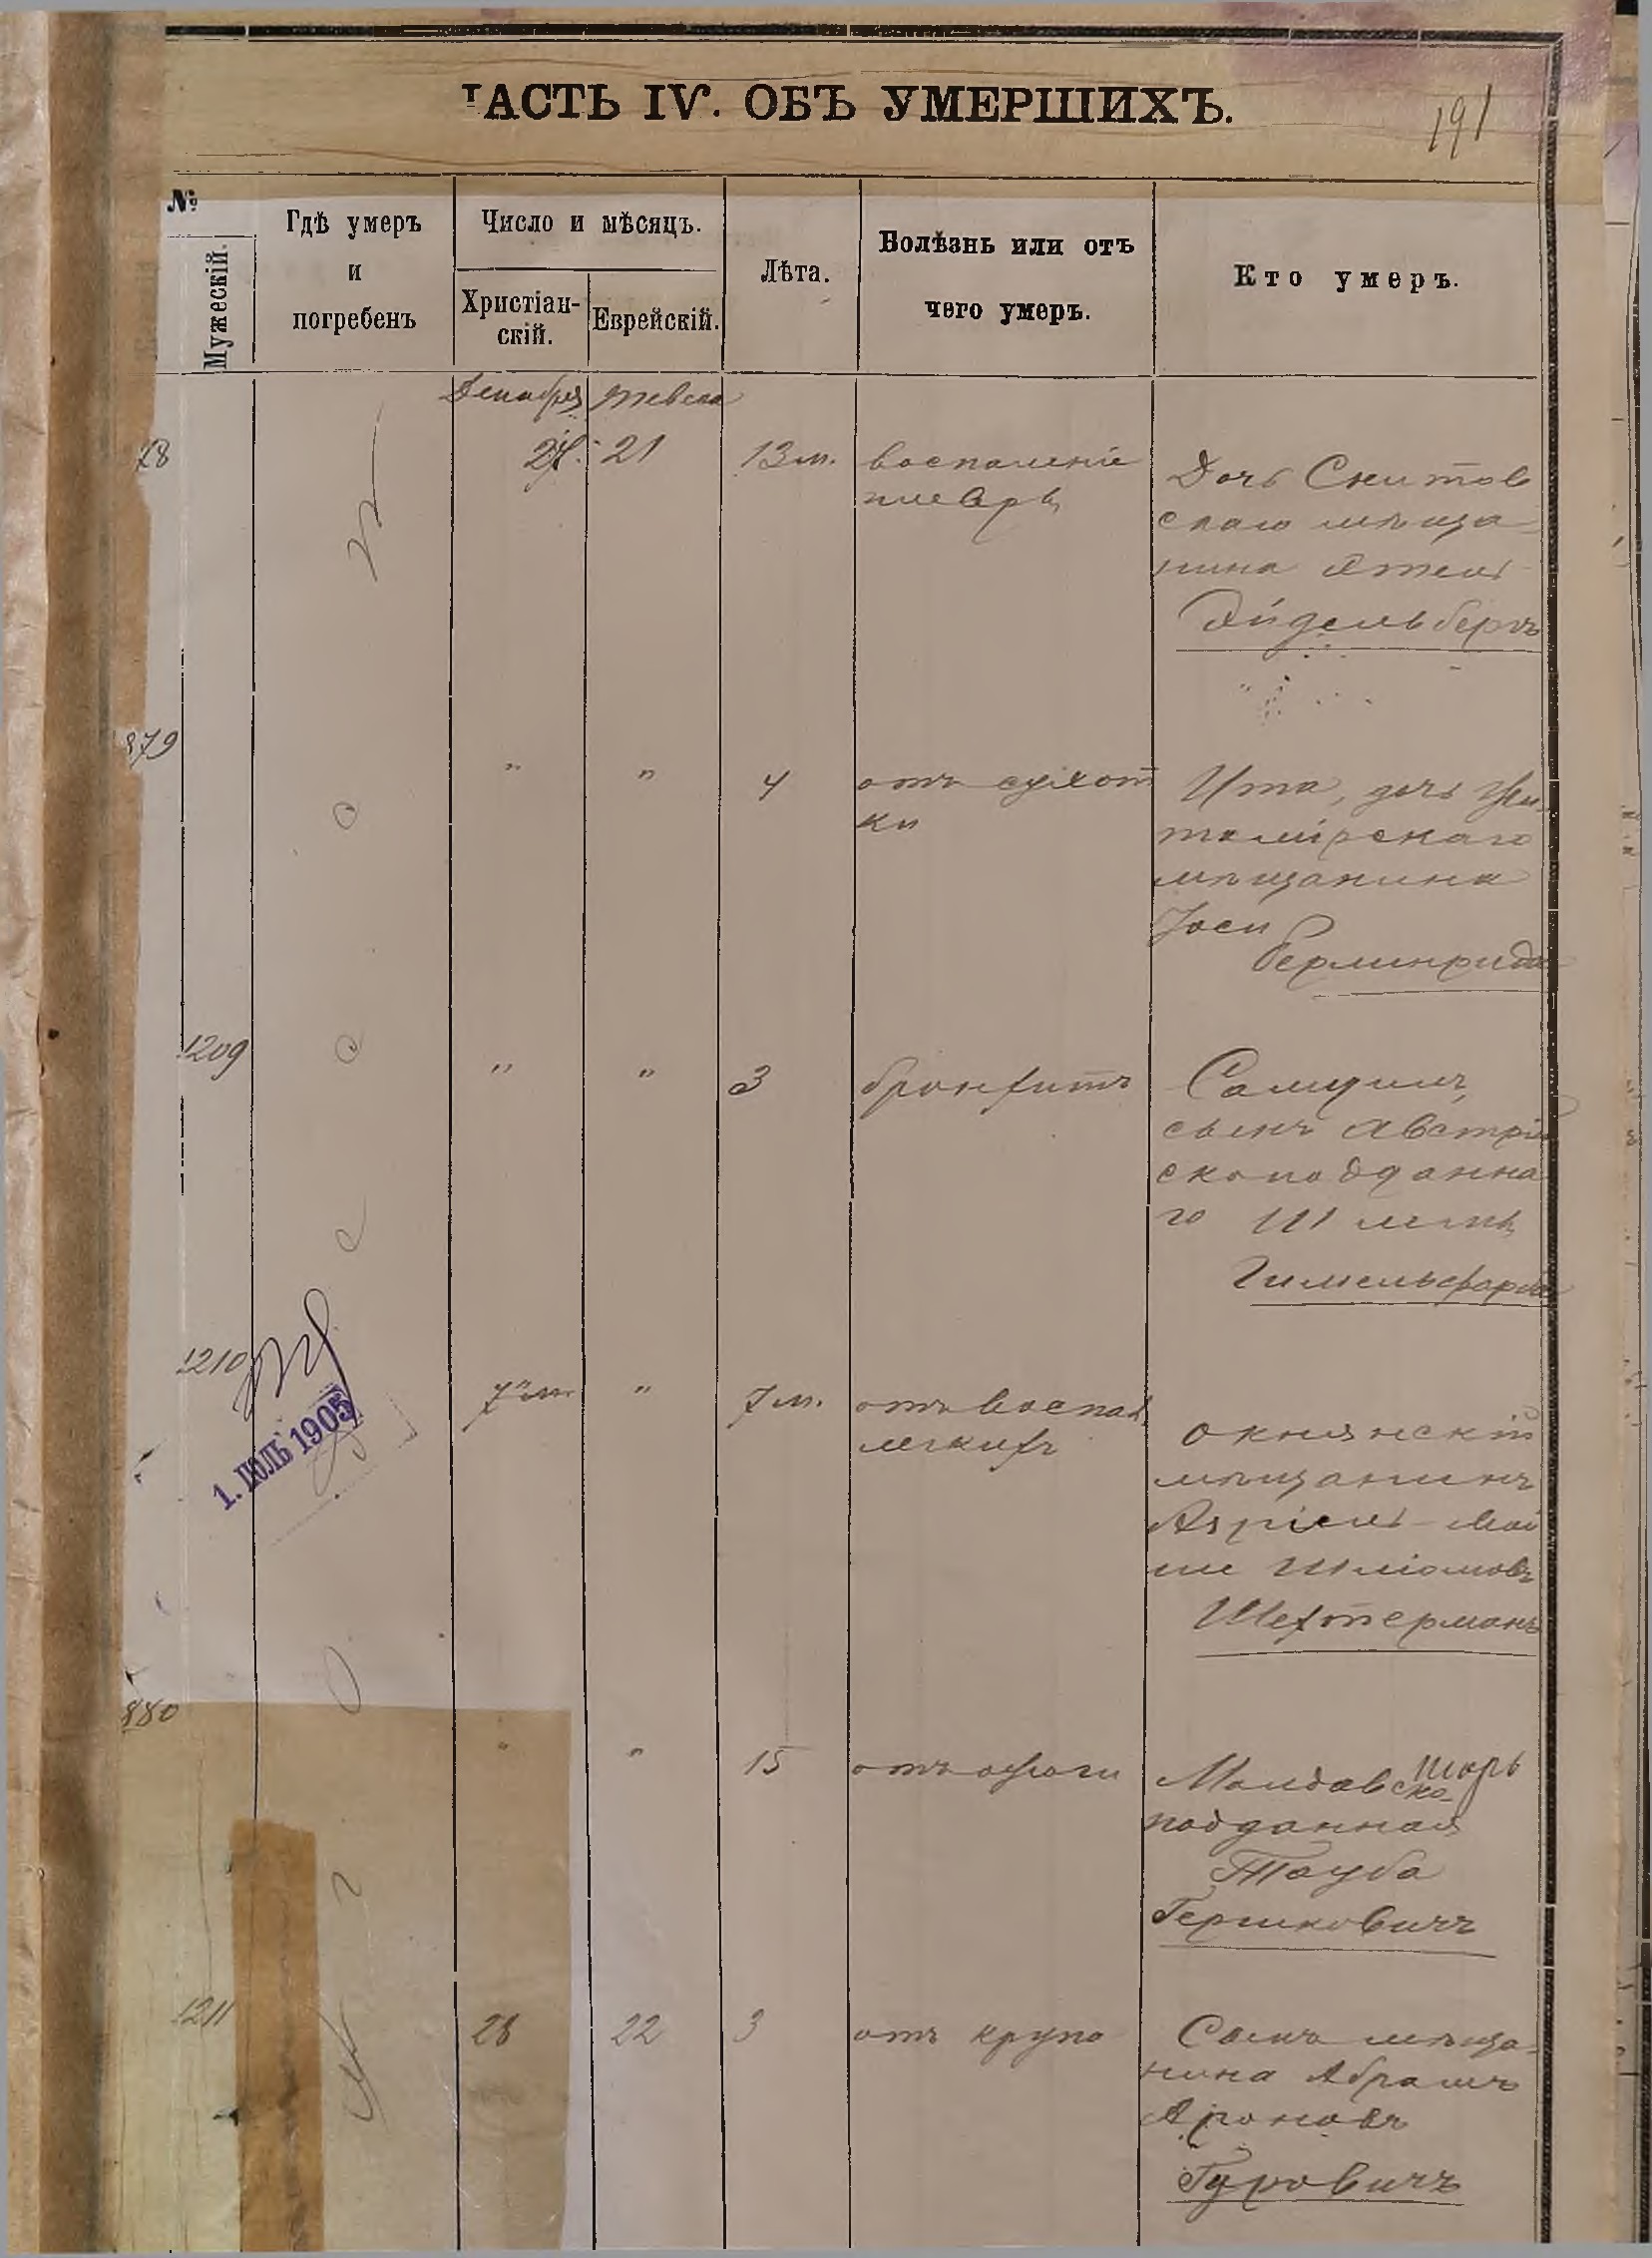 ЧАСТЬ IV. ОБЪ УМЕРШИХЪ.
191
№
Мужескій.
Гдѣ умеръ
и
погребенъ
Число и мѣсяцъ.
Христіан-
скій.
Еврейскій.
Лѣта.
Болѣзнь или отъ
чего умеръ.
Кто умеръ.
Декабря
тевеса
78
21
13 м.
воспаленіе
плевры
Дочь
скаго мѣща-
нина
Эйдельбергъ
879
"
"
4
отъ сухот
ки
Ита, дочь Жи-
томірскаго
мѣщанина
Іоси
1209
"
"
3
бронхитъ
сынъ Австрій
скоподданна
го
Гимельфарба
1210
"
"
7 м.
отъ воспал.
легкихъ
окнянскій
мѣщанинъ
Азріель-Мой
ше Шліомовъ
Шехтерманъ
880
"
"
15
отъ ожоги
Молдавско-
подданная
Тауба
Гершковичъ
1211
28
22
3
отъ крупа
Сынъ мѣща-
нина Абрамъ
Ароновъ
Гуровичъ
1. ІЮЛЬ 1905